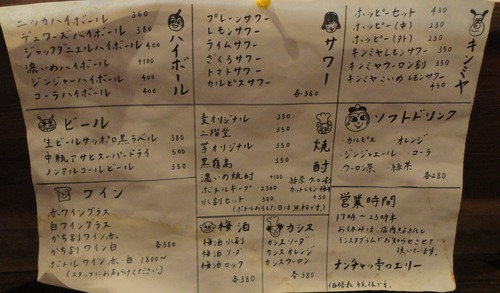 ハイボール
ニッカハイボール 360
デュワーズハイボール 380
ジャックダニエルハイボール 400
濃いめハイボール +100
ジンジャーハイボール 400
コーラハイボール 400
サワー
プレーンサワー
レモンサワー
ライムサワー
ざくろサワー
トマトサワー
カルピスサワー
各360
キンミヤ
ホッピーセット 450
ホッピー(中)
ホッピー(外)
キンミヤレモンサワー
キンミヤウーロン割
キンミヤこいめレモンサワー 450
ビール
生ビールサッポロ黒ラベル 380
中瓶アサヒスーパードライ 500
ノンアルコールビール 350
焼酎
麦オリジナル 350
二階堂 350
芋オリジナル 350
黒霧島 350
濃いめ焼酎 +100
ボトルキープ 2300
水割セット 300
緑茶ウーロン割
カットレモン梅干
+50
(ボトルおろした日は無料です)
ソフトドリンク
カルピス オレンジ
ジンジャエール コーラ
ウーロン茶 緑茶
各280
ワイン
赤ワイングラス
白ワイングラス
かち割ワイン赤
かち割ワイン白 各380
ボトルワイン赤白 1800〜
(スタッフにお声がけください。)
梅酒
梅酒水割
梅酒ソーダ
梅酒ロック
各380
カシス
カシスソーダ
カシスオレンジ
カシスウーロン
各380
営業時間
17時〜23時半
お休みは、店内または
インスタグラムでお知らせさせて
頂いています。
ナンチャッ亭のエリー
(価格表 税抜です。)